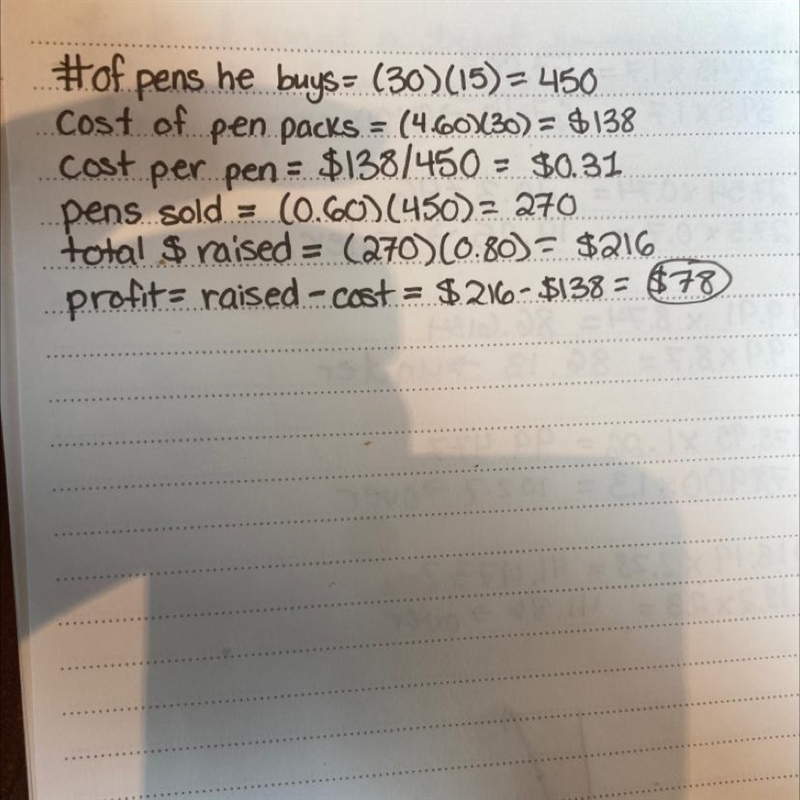 # of pens he buys = (30)(15) = 450
Cost of pen packs = (4.60)(30) = $138
cost per pen = $138/450 = $0.31
pens sold = (0.60)(450) = 270
total $ raised = (270)(0.80) = $216
profit = raised - cost = $216 - $138 = $78